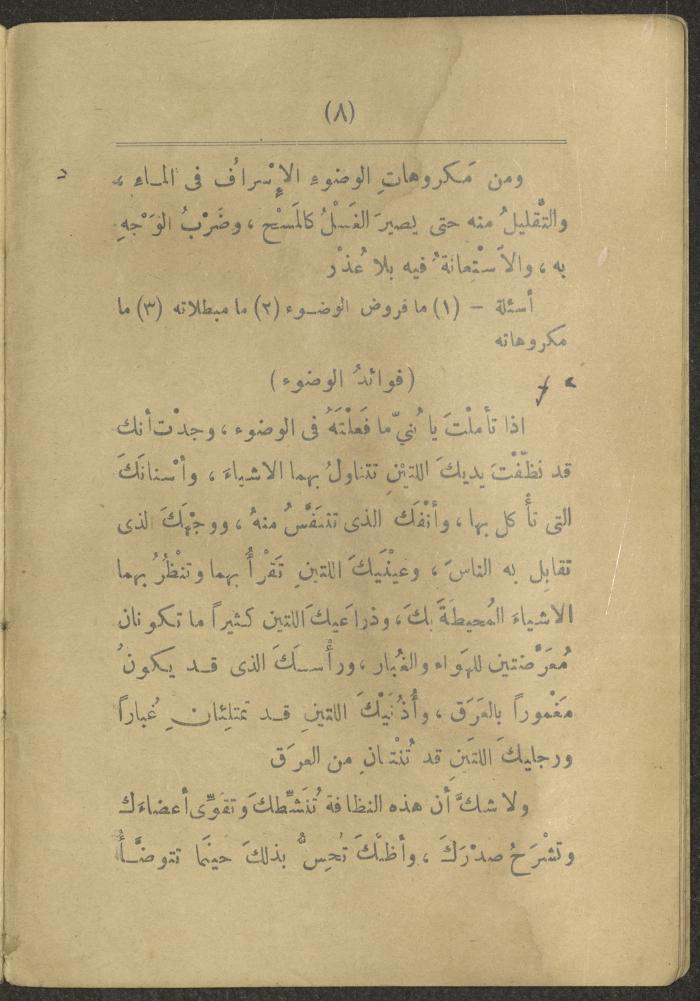 (٨)
ومن مَكروهاتِ الوضوءِ الإِسْرافُ فى الماءِ ،
والتَّقليلُ منه حتى يصيرَ الغَسْلُ كالمَسْح ، وضَرْبُ الوَجهِ
به ، والاسْتِعانةُ فيه بلا عُذْر
أسئلة – (١) ما فروض الوضوء (٢) ما مبطلاته (٣) ما
مكروهاته
(فوائدُ الوضوء)
اذا تأملْتَ يا بُنيّ ما فَعَلْتَهُ فى الوضوء ، وجدْت أنك
قد نظّفْتَ يديكَ اللتيْنِ تتناولُ بهما الاشياءَ ، وأسْنانَكَ
التى تأْكل بها ، وأنْفَكَ الذى تتنَفَّسُ منهُ ، ووجْهَكَ الذى
تقابِل به الناسَ ، وعينَيكَ اللتينِ تَقْرأُ بهما وتنْظُرُ بهما
الاشياءَ المُحيطةَ بكَ ، وذراعيكَ اللتين كثيراً ما تكونان
مُعَرَّضتين للهَواء والغُبار ، ورأْسكَ الذى قد يكونُ
مَغْموراً بالعَرَق ، وأُذُنَيْكَ اللتينِ قد تمتلِئانِ غُباراً
ورجليكَ اللتَينِ قد تُنْتنانِ من العرَق
ولا شكَّ أن هذه النظافةَ تُنَشِّطكَ وتقوِّى أعضاءَك
وتشْرَحُ صدْرَكَ ، وأظنّكَ تُحِسُّ بذلكَ حينَما تتوضَّأُ